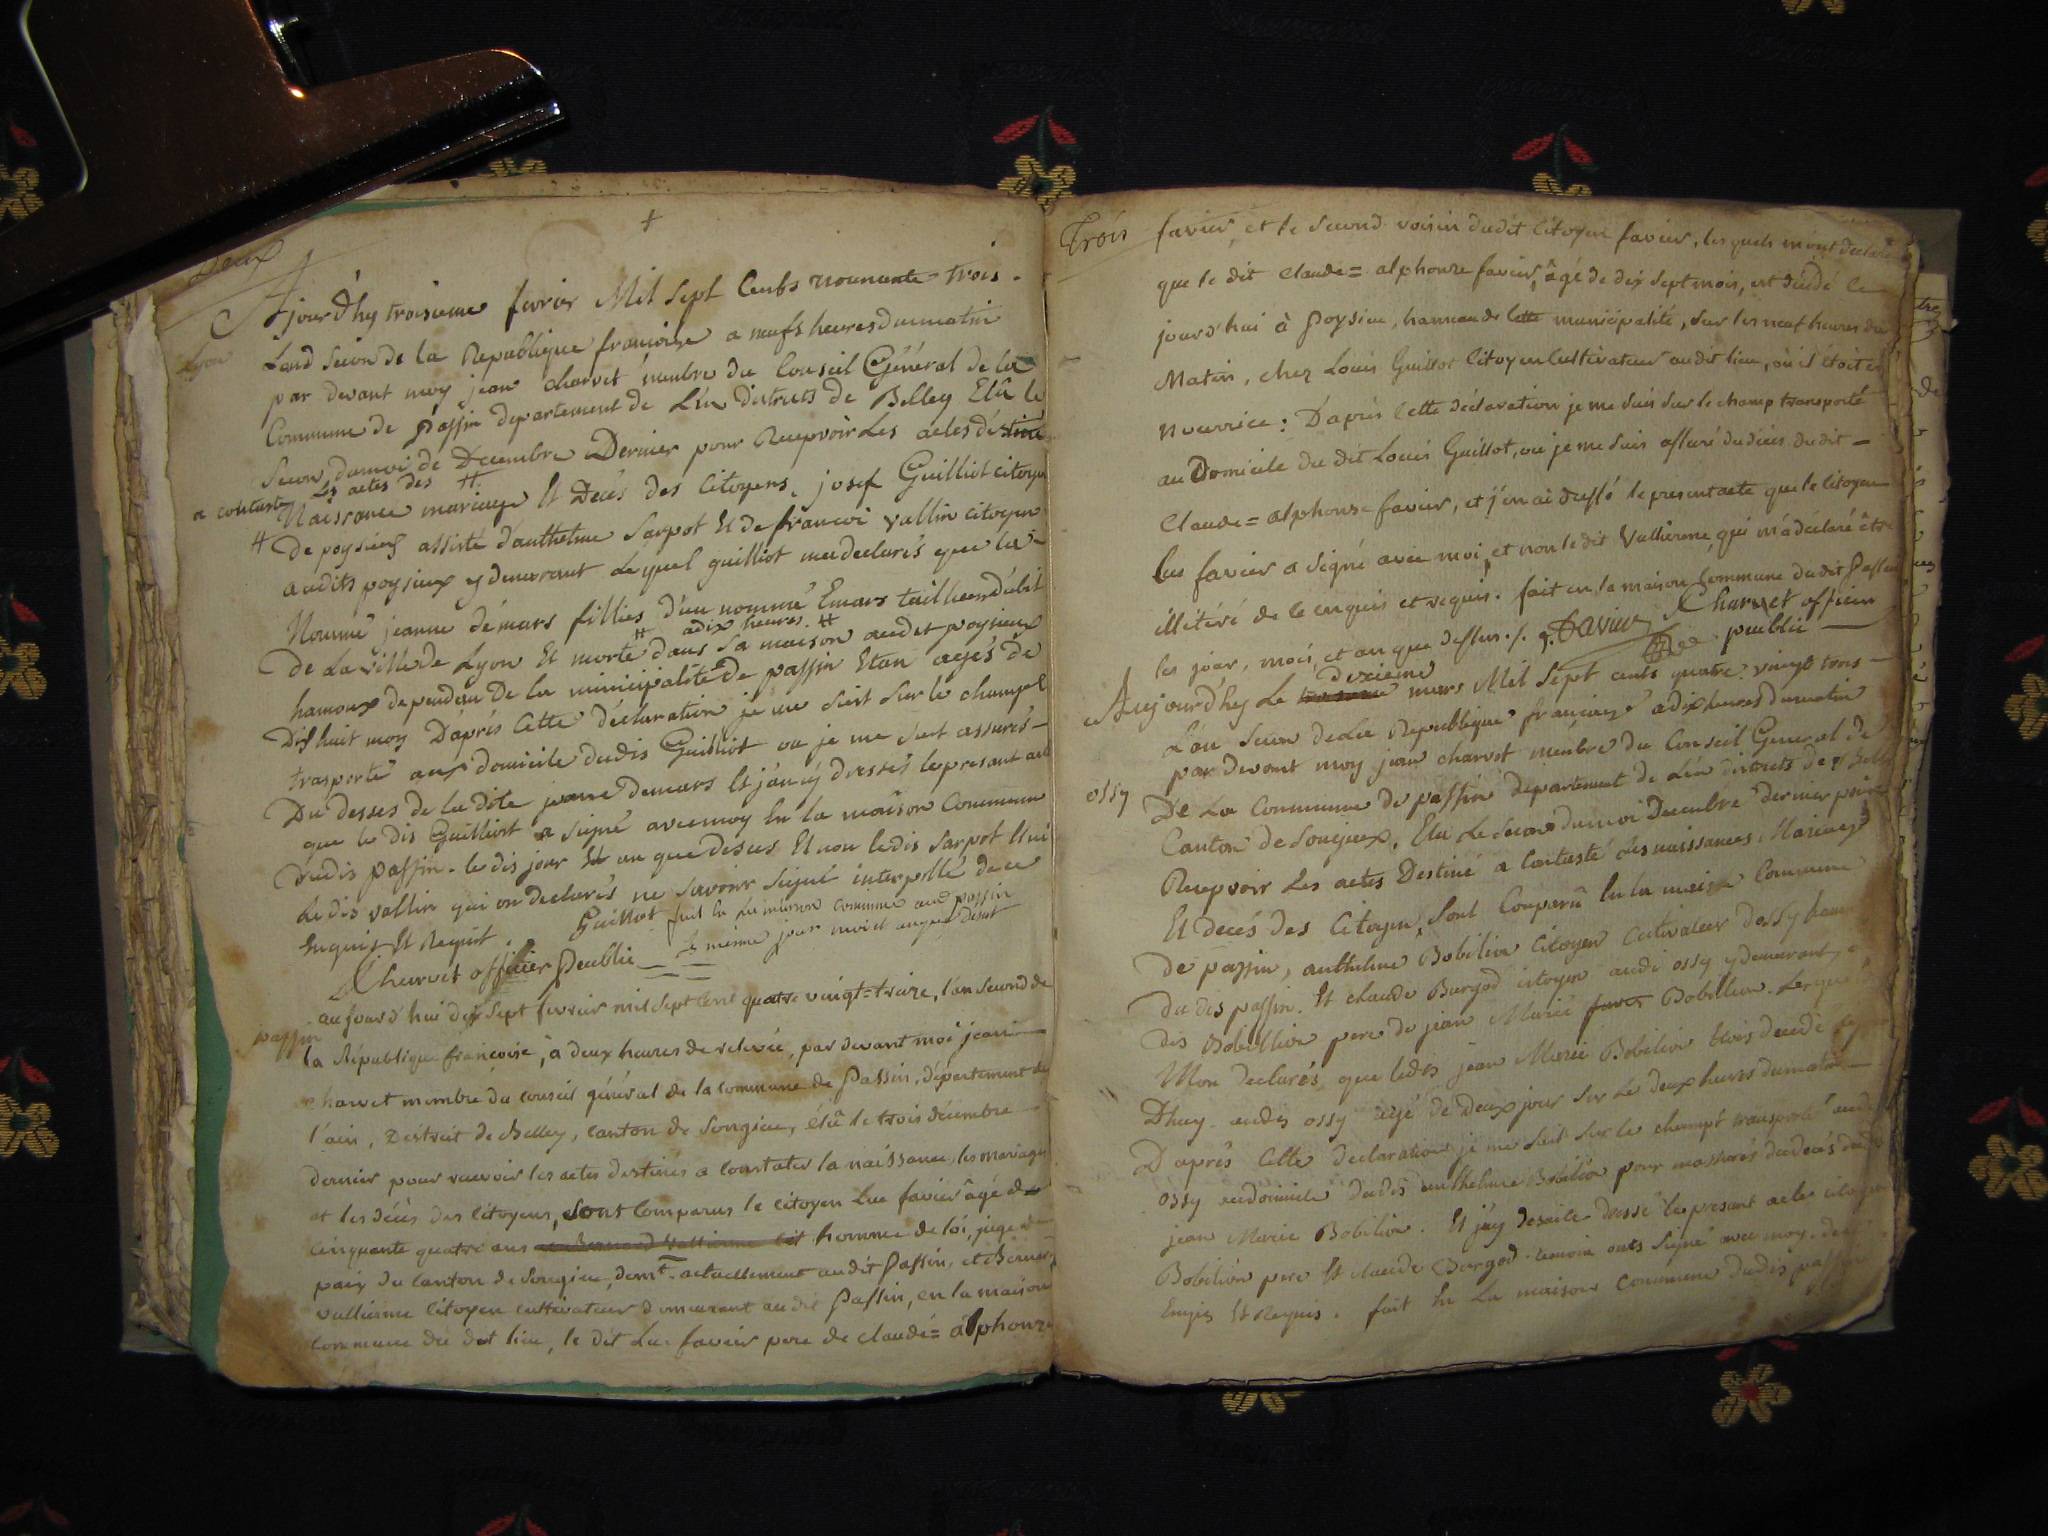 Deux
Ajourd'hy troisieme fevrier Mil Sept Cents nonante = trois.
Lyon
Land Secon de la Republique francoise a neufs heures du matin
par devant moy jean charvet menbre du Conseil Général de la
Commune de passin departement de Lin districts de Belley Elû le
Secon du moi de Decembre Dernier pour Recepvoir Les actes déstiné
a contasté Les actes des #
Naissance mariage Et Decés des Citoyens, josef Guilliot citoyen
# De poysieux assisté d'anthelme Sarpot Et de francoi vallin citoyen
audits poysieux y demeurant Lequel guilliot me declarés que la
Nommé jeanne démars fillies d'un nommé Emars tailleur d'abit
# adix heures. #
De La ville de Lyon Et morte dans Sa maison audit poysieux
hamoux dependen De la minicipalité De passin Etan agés de
Dishuit moy D'aprés Cette déclaration je me Suit Sur le champt
trasporté aux domicile dudis Guilliot ou je me Suit assurés
Du desses de la dite jeanne demars Et j'an éy dressés lepresant act
que le dis Guilliot a Signé avecmoy En La maison Commune
dudis passin. le dis jour Et an que Desus Et non ledis Sarpot Et ni
Le dis vallin qui on declarés ne Savoir Signé interpellé de ce
Enquis Et Requit. Guillot fait En La maison commune aud passin
le même jour moi et anque desut
Charvet officier Peublic
passin
aujourd'hui dix Sept fevrier mil Sept cent quatre vingt = treize, l'an Second de
la République francoise, à deux heures de relevée, par devant moi jean
charvet membre du conseil général de la commune de Passin, département de
l'ain, District de Belley, canton de Songieu, élû le trois décembre
dernier pour recevoir les actes destinés a constater la naissance, les mariages
et les décés des Citoyens, Sont Comparus le citoyen Luc favier âgé de
Cinquante quatre ans homme de loi, juge de
paix du canton de Songieu, demt. actuellement audit Passin, et Bernard
vullierme Citoyen cultivateur demeurant audit Passin, en la maison
commune du dit lieu, le dit Luc favier pere de claude = alphonze
Trois
favier, et le Second voisin dudit Citoyen favier, lesquels m'ont déclaré
que le dit claude = alphonze favier, âgé de dix Sept mois, est décédé ce
jourd'hui à Poysieu, hameau de Cette municipalité, Sur les neuf heures du
Matin, chez Louis Guillot Citoyen Cultivateur audit lieu, où il étoit en
nourrice : D'apres Cette déclaration je me Suis Sur le champ transporté
au Domicile du dit Louis Guillot, où je me Suis assuré du décés dudit
Claude = alphonse favier, et j'en ai dressé le present acte que le citoyen
Luc favier a Signé avec moi, et non le dit Vullierme, qui m'a déclaré être
illitéré de le enquis et requis. fait en la maison Commune dudit Passin
les jour, mois, et an que dessus ./. Favier Charvet officier
peublic
deuxieme
Aujourd'hy Le mars Mil Sept cents quatre vingt trois
L'an Secon De La Republique françaize a dix heures Du matin
par Devant moy jean charvet menbre du Conseil General de
ossy
De La Commune De passin département de Lin districts de Belley
Canton de Sonjeux, Elu Le Secon du moi Decembre Dernier pour
Recepvoir Les actes Destiné a Contasté Les naissances, Mariages
Et decés des Citoyen, Sont Conparû En La maison Commune
De passin, anthelme Bobilion Citoyen Cutivateur dossy hameau
Du dis passin. Et claude Burgod citoyen audi ossy y demeurant, le
dis Bobillion pere de jean Marie Bobillion. Lesquels
Mon declarés que ledis jean Marie Bobilion Etois decedé
Dhuy audis ossy agé de deux jour Sur Les deux heures du matin
D'aprés Cette declaration je me Suit Sur Le champt transporté audis
ossy audomicile dudis anthelme Bobilion pour massurés du decés dudis
jean Marie Bobilion. Et j'ey desuite dressé le presant acte citoyen
Bobilion pere Et claude Burgod temoin onts Signé avec moy de
Enqis Et Requis. fait En La maison commune dudis passin